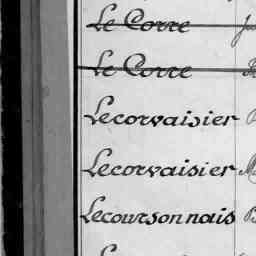 Le Corre
Le Corre
Lecorvaisier
Lecorvaisier
Lecoursonnais